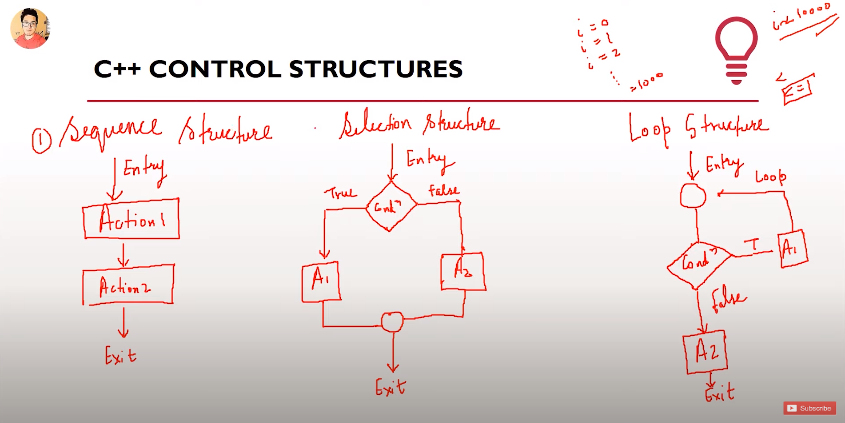 C++ CONTROL STRUCTURES
i=0
i=1
i=2
=1000
① Sequence Structure
Entry
Action1
Action2
Exit
Selection Structure
Entry
True
False
Condn
A1
A2
Exit
Loop Structure
Entry
Loop
Condn
T
A1
False
A2
Exit
Subscribe